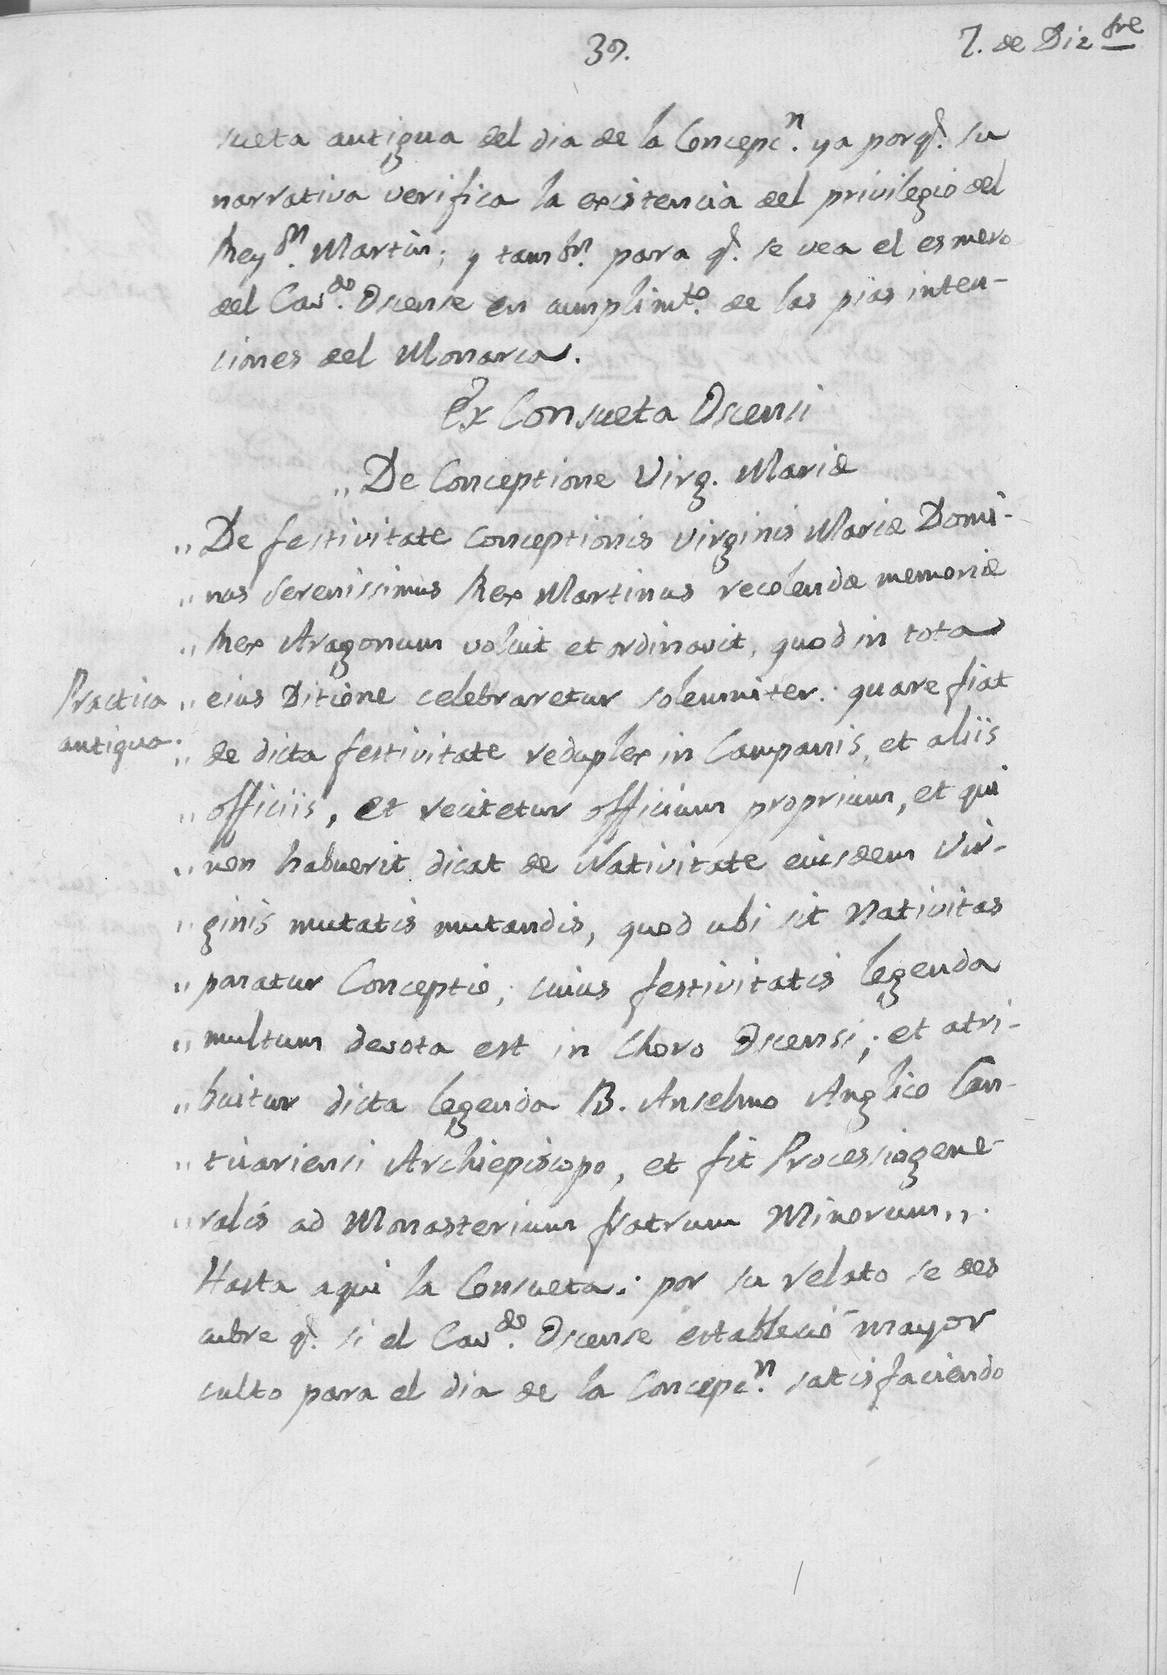 39.
7. de Dizbre
sueta antigua del dia de la Concepcn. ya porq. su
narrativa verifica la existencia del privilegio del
Rey Dn. Martin; y tambn. para q. se vea el esmero
del Cavdo. Oscense en cumplimto. de las pias inten-
ciones del Monarca.
Ex Consueta Oscensi
„ De Conceptione Virg. Mariæ
„ De festivitate Conceptionis Virginis Mariæ Domi-
„ nus serenissimus Rex Martinus recolendæ memoriæ
„ Rex Aragonum voluit et ordinavit, quod in tota
Practica antigua.
„ eius Ditione celebraretur solemniter: quare fiat
„ de dicta festivitate reduplex in Campanis, et aliis
„ officiis, et recitetur officium proprium, et qui
„ non habuerit dicat de Nativitate eiusdem Vir-
„ ginis mutatis mutandis, quod ubi sit Nativitas
„ ponatur Conceptio; cuius festivitatis legenda
„ multum devota est in Choro Oscensi; et atri-
„ buitur dicta legenda B. Anselmo Anglico Can-
„ tuariensi Archiepiscopo, et fit Processio gene-
„ ralis ad Monasterium fratrum Minorum„.
Hasta aqui la Consueta: por su relato se des
cubre q. si el Cavdo. Oscense estableció mayor
culto para el dia de la Concepcn. satisfaciendo